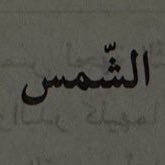 الشّمس